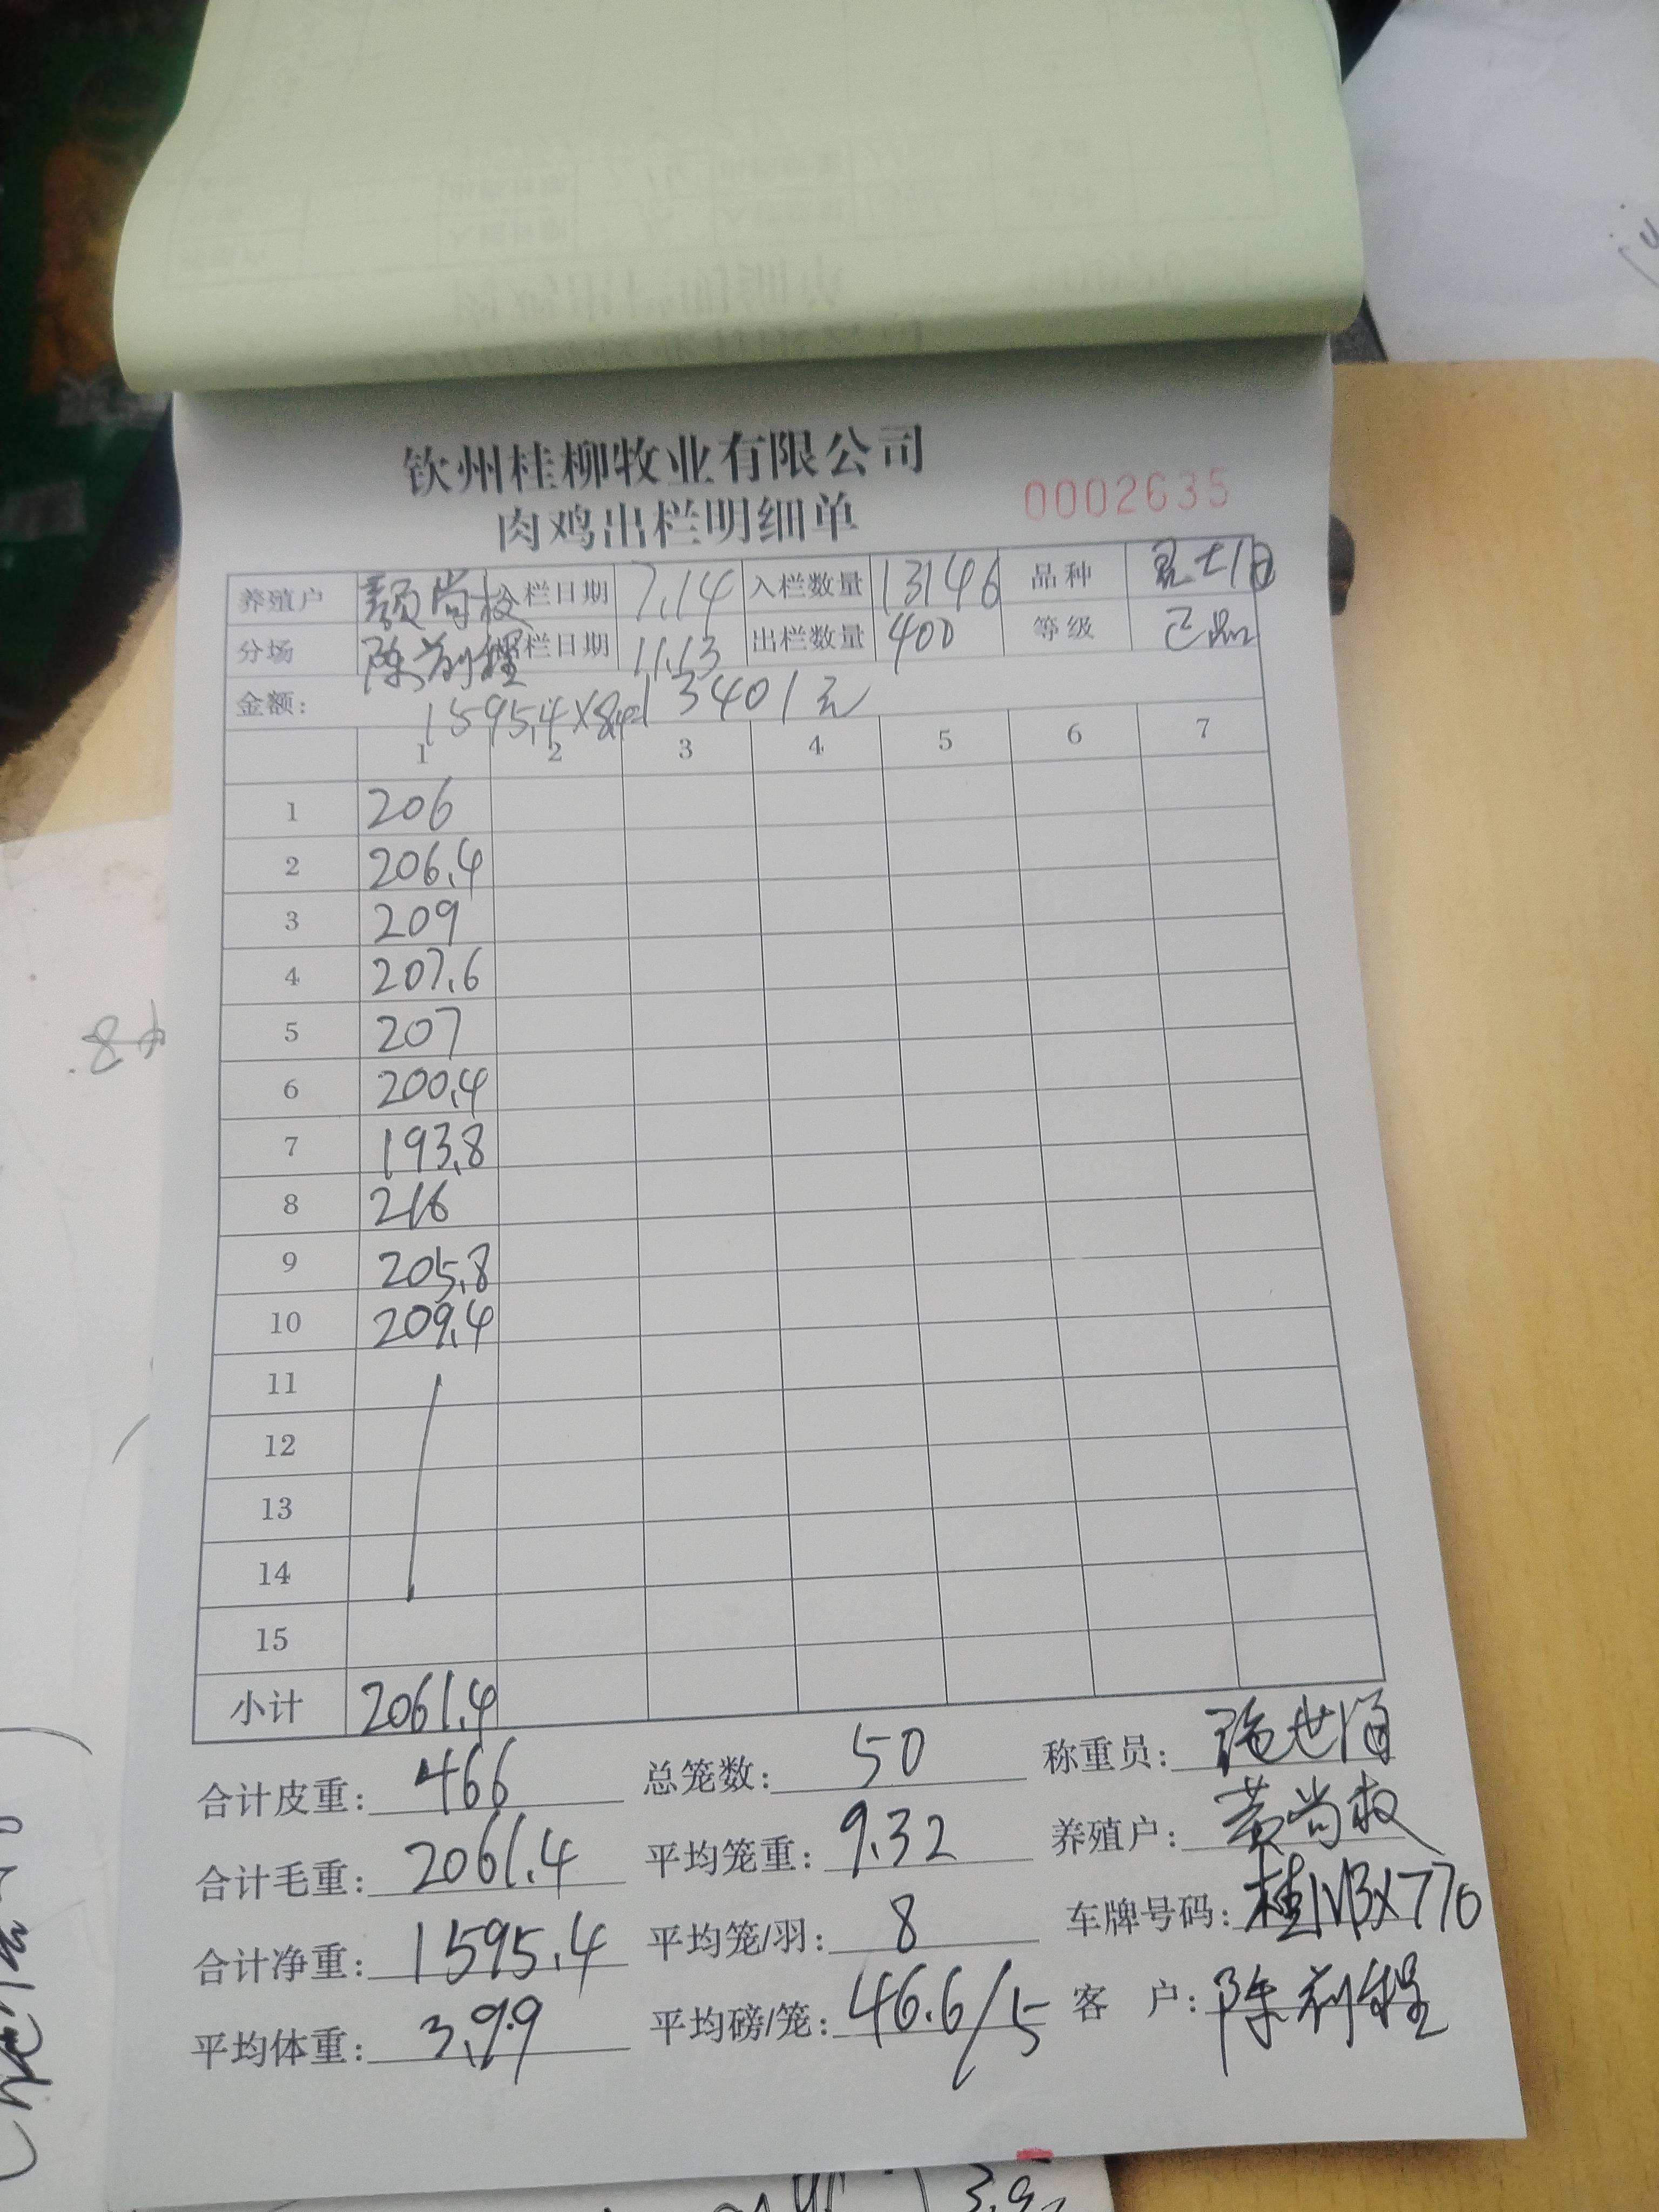 钦州桂柳牧业有限公司
肉鸡出栏明细单
0002635
养殖户 颜尚枚 入栏日期 7.14 入栏数量 13146 品种
分场 陈前程 出栏日期 11.13 出栏数量 400 等级 正品
金额: 1595.4×8.4=13401元
1 2 3 4 5 6 7
1 206
2 206.4
3 209
4 207.6
5 207
6 200.4
7 193.8
8 216
9 205.8
10 209.4
11
12
13
14
15
小计 2061.4
合计皮重: 466 总笼数: 50 称重员:
合计毛重: 2061.4 平均笼重: 9.32 养殖户: 黄尚枚
合计净重: 1595.4 平均笼/羽: 8 车牌号码: 桂NBX770
平均体重: 3.99 平均磅/笼: 46.6/5 客 户: 陈前程